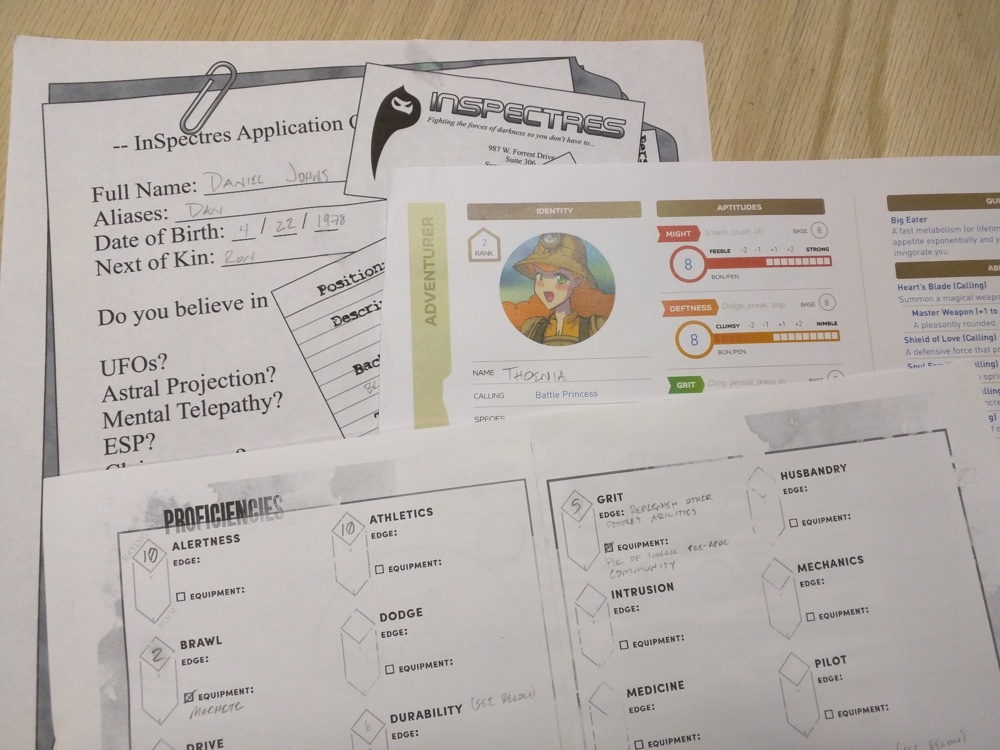 -- InSpectres Application
Full Name: DANIEL JOHNS
Aliases: DAN
Date of Birth: 4 / 22 / 1978
Next of Kin: RON
Do you believe in
UFOs?
Astral Projection?
Mental Telepathy?
ESP?
Position:
INSPECTRES
Fighting the forces of darkness so you don't have to...
987 W. Forrest Drive
Suite 306
ADVENTURER
IDENTITY
2
RANK
NAME THOENIA
CALLING Battle Princess
SPECIES
APTITUDES
MIGHT Smash, crush, lift BASE 8
8 FEEBLE -2 -1 +1 +2 STRONG
BON/PEN
DEFTNESS Dodge, sneak, leap BASE 8
8 CLUMSY -2 -1 +1 +2 NIMBLE
BON/PEN
GRIT Cling, persist, press on
Big Eater
A fast metabolism (or lifetim
appetite exponentially and y
invigorate you.
Heart's Blade (Calling)
Summon a magical weapo
Master Weapon (+1 to
A pleasantly rounded,
Shield of Love (Calling)
A defensive force that pr
PROFICIENCIES
10 ALERTNESS
EDGE:
EQUIPMENT:
2 BRAWL
EDGE:
EQUIPMENT:
MACHETE
DRIVE
10 ATHLETICS
EDGE:
EQUIPMENT:
DODGE
EDGE:
EQUIPMENT:
6 DURABILITY (SEE BELOW)
5 GRIT
EDGE: REPLENISH OTHER
PEOPLE'S ABILITIES
EQUIPMENT:
PIC OF
COMMUNITY
INTRUSION
EDGE:
EQUIPMENT:
MEDICINE
EDGE:
EQUIPMENT:
HUSBANDRY
EDGE:
EQUIPMENT:
MECHANICS
EDGE:
EQUIPMENT:
PILOT
EDGE:
EQUIPMENT: